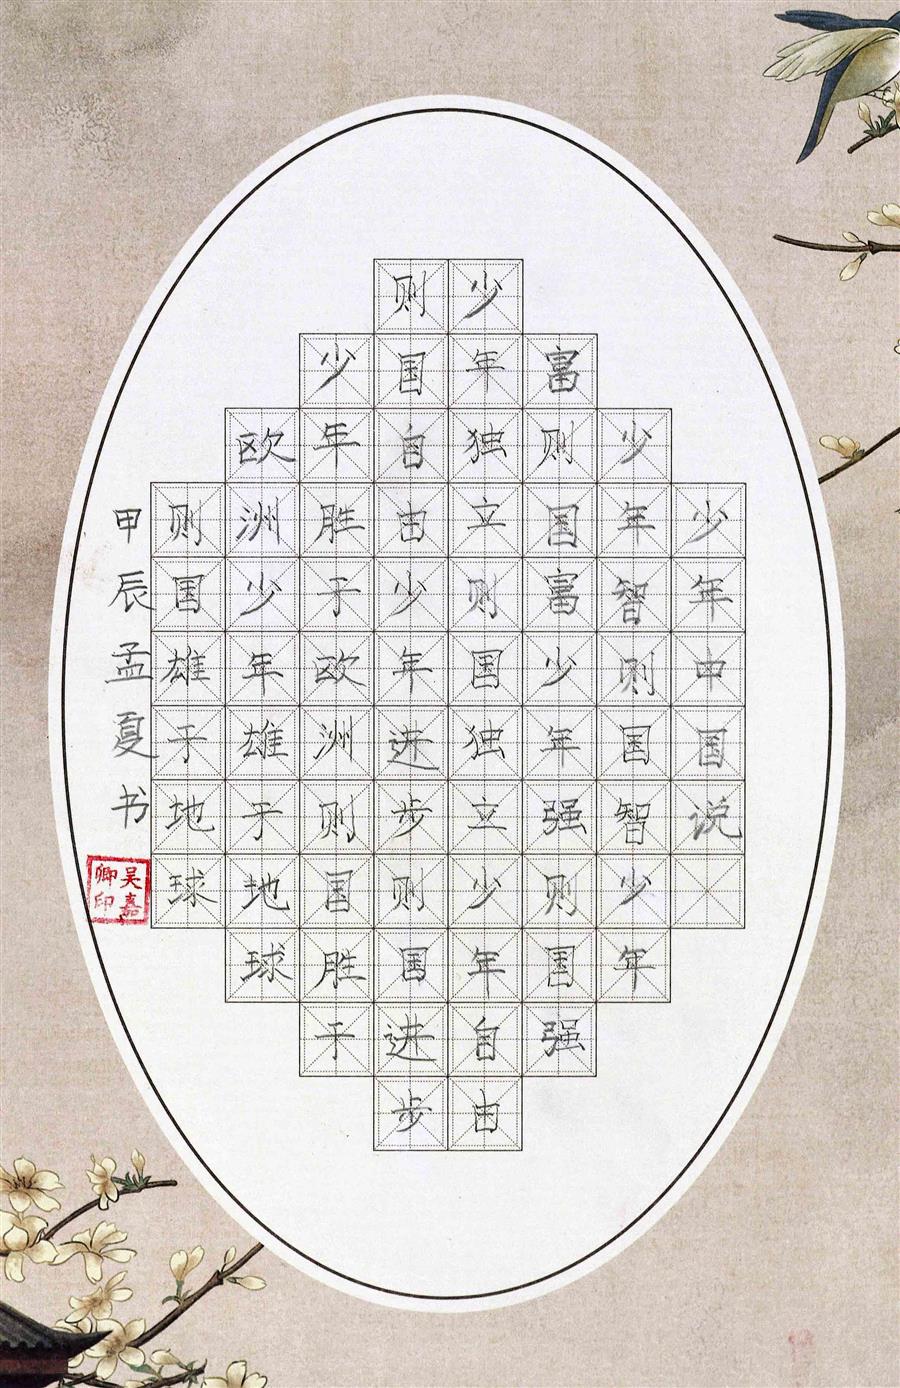 少年中国说
少年智则国智少年
富则国富少年强则国强
少年独立则国独立少年自由
则国自由少年进步则国进步
少年胜于欧洲则国胜于
欧洲少年雄于地球
则国雄于地球
甲辰孟夏书
吴嘉卿印